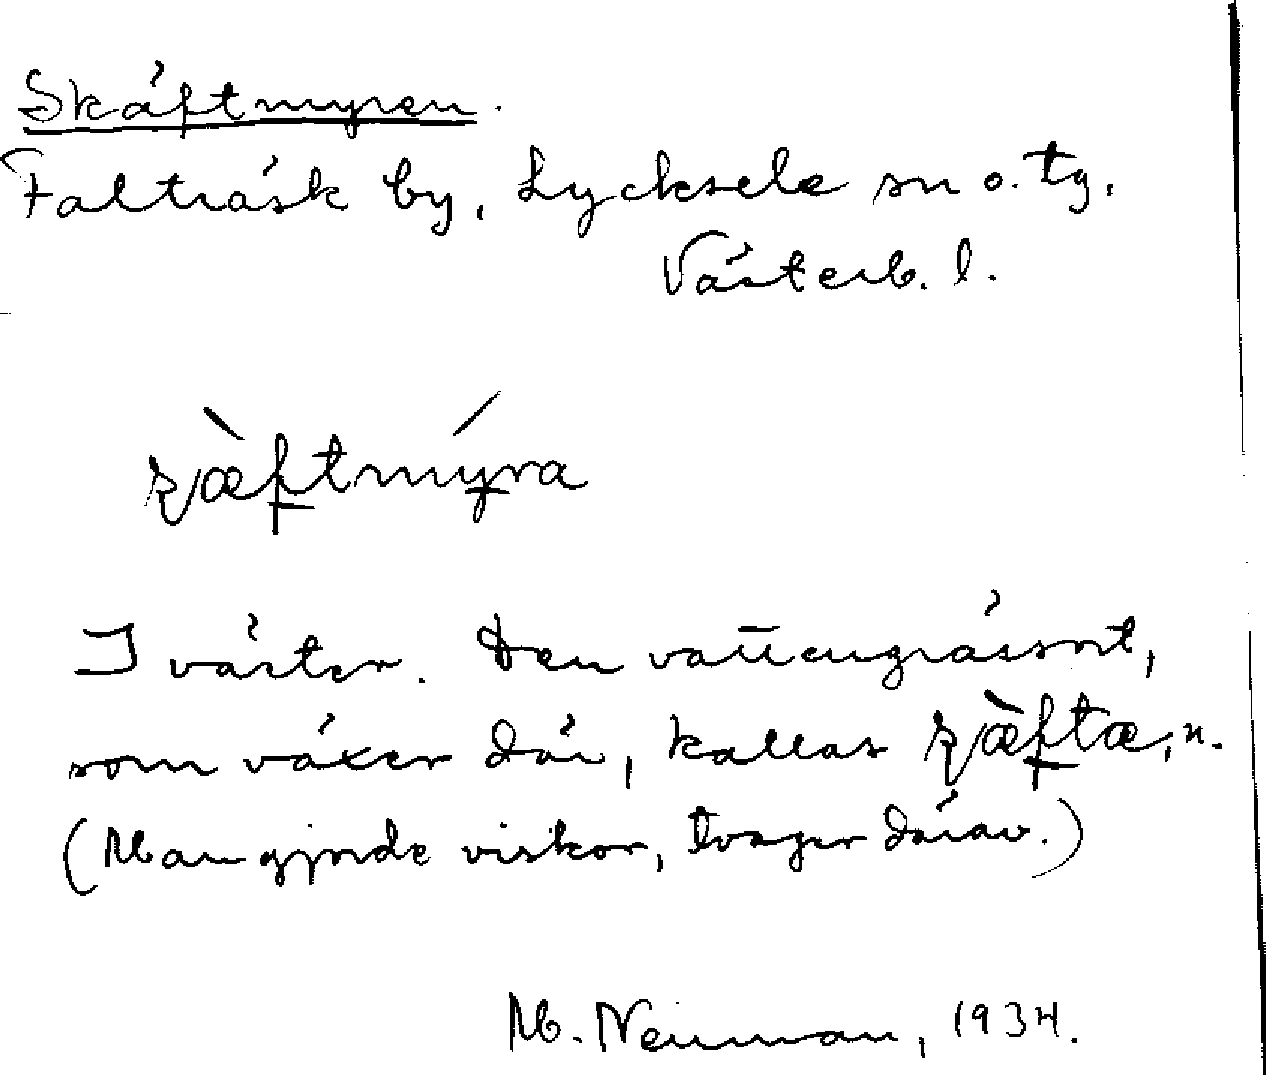 Skäftmyren.
Falträsk by, Lycksele sn o. tg.
Västerb. l.
I väster. Den vattengrässort,
som växer där, kallas n.
(Man gjorde viskor, tvagor därav.)
M. Neuman, 1934.